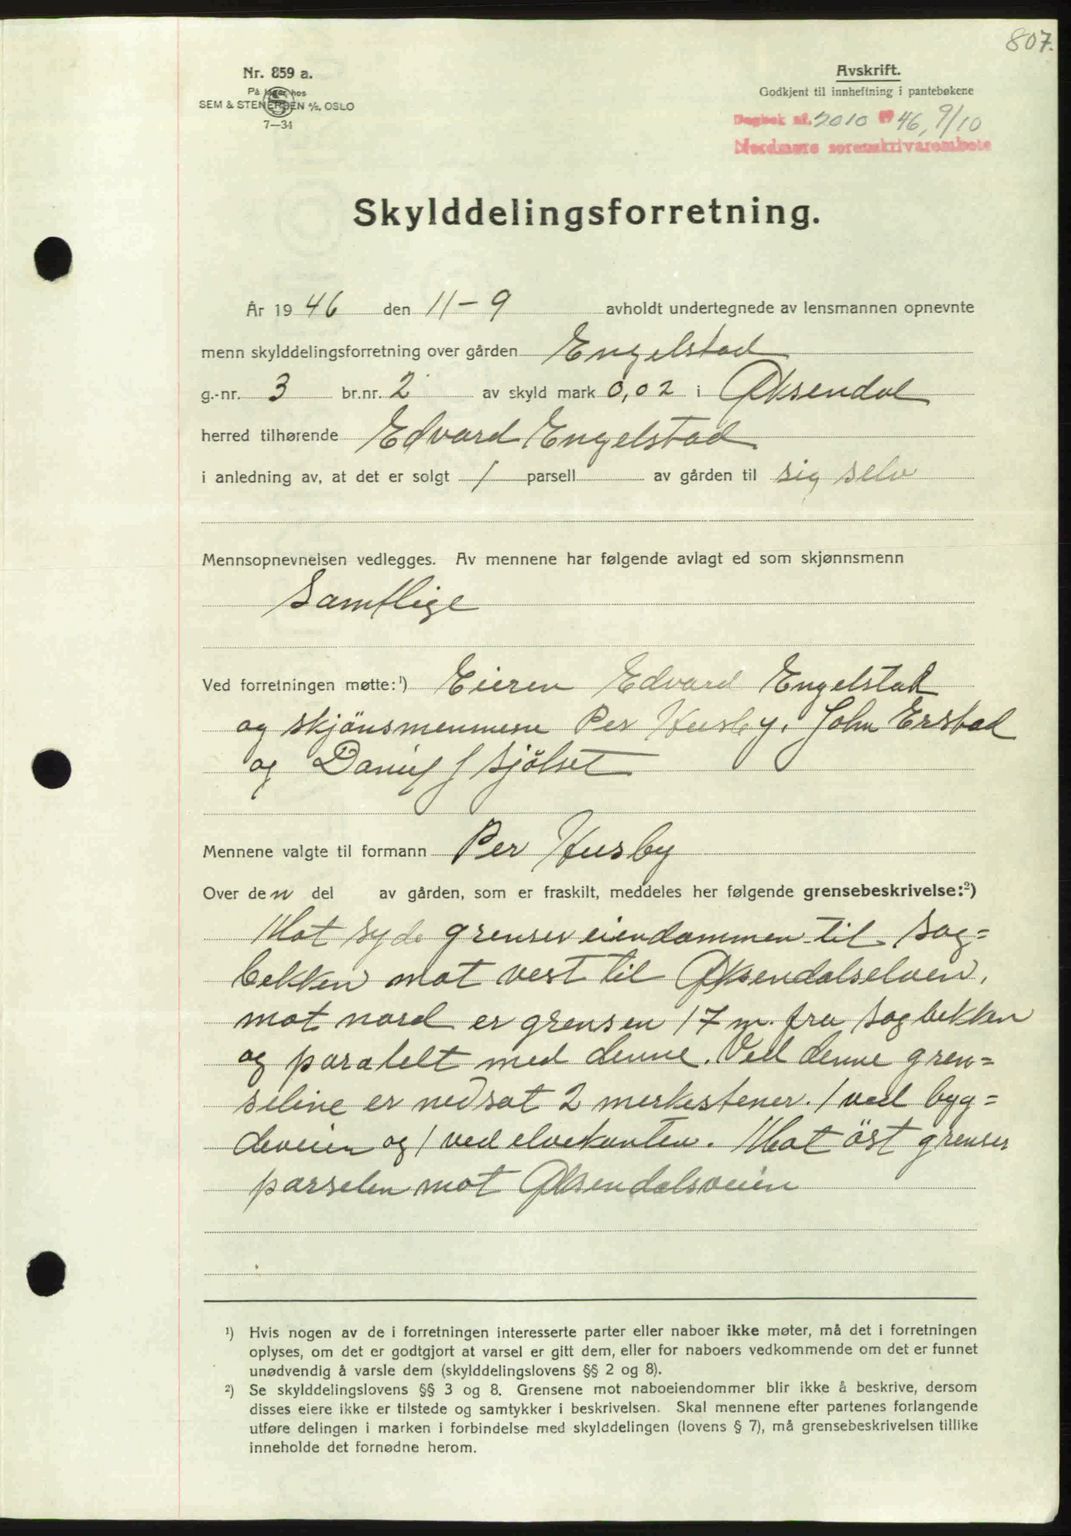 807.
Nr. 859 a.
På lager hos
SEM & STENERSEN A/S, OSLO
7—34
Avskrift.
Godkjent til innheftning i pantebøkene
Dagbok nr. 2010 19 46, 9/10
Nordmøre sorenskrivarembete
Skylddelingsforretning.
År 19 46 den 11-9 avholdt undertegnede av lensmannen opnevnte
menn skylddelingsforretning over gården Engelstad
g.-nr. 3 br.nr. 2 av skyld mark 0,02 i Øksendal
herred tilhørende Edvard Engelstad
i anledning av, at det er solgt 1 parsell av gården til sig selv
Mennsopnevnelsen vedlegges. Av mennene har følgende avlagt ed som skjønnsmenn
Samtlige
Ved forretningen møtte:¹) Eieren Edvard Engelstad
og skjönsmennene Per Husby, John Erstad
og Daniel J Sjölset
Mennene valgte til formann Per Husby
Over den del av gården, som er fraskilt, meddeles her følgende grensebeskrivelse:²)
Mot syde grenser eiendommen til Sag=
bekken mot vest til Øksendalselven,
mot nord er grensen 17 m. fra sagbekken
og paralelt med denne. Ved denne gren=
seline er nedsat 2 merkestener. 1 ved byg=
deveien og 1 ved elvekanten. Mot öst grenser
parselen mot Øksendalsveien
¹) Hvis nogen av de i forretningen interesserte parter eller naboer ikke møter, må det i forretningen
oplyses, om det er godtgjort at varsel er gitt dem, eller for naboers vedkommende om det er funnet
unødvendig å varsle dem (skylddelingslovens §§ 2 og 8).
²) Se skylddelingslovens §§ 3 og 8. Grensene mot naboeiendommer blir ikke å beskrive, dersom
disses eiere ikke er tilstede og samtykker i beskrivelsen. Skal mennene efter partenes forlangende
utføre delingen i marken i forbindelse med skylddelingen (lovens § 7), må grensebeskrivelsen tillike
inneholde det fornødne herom.